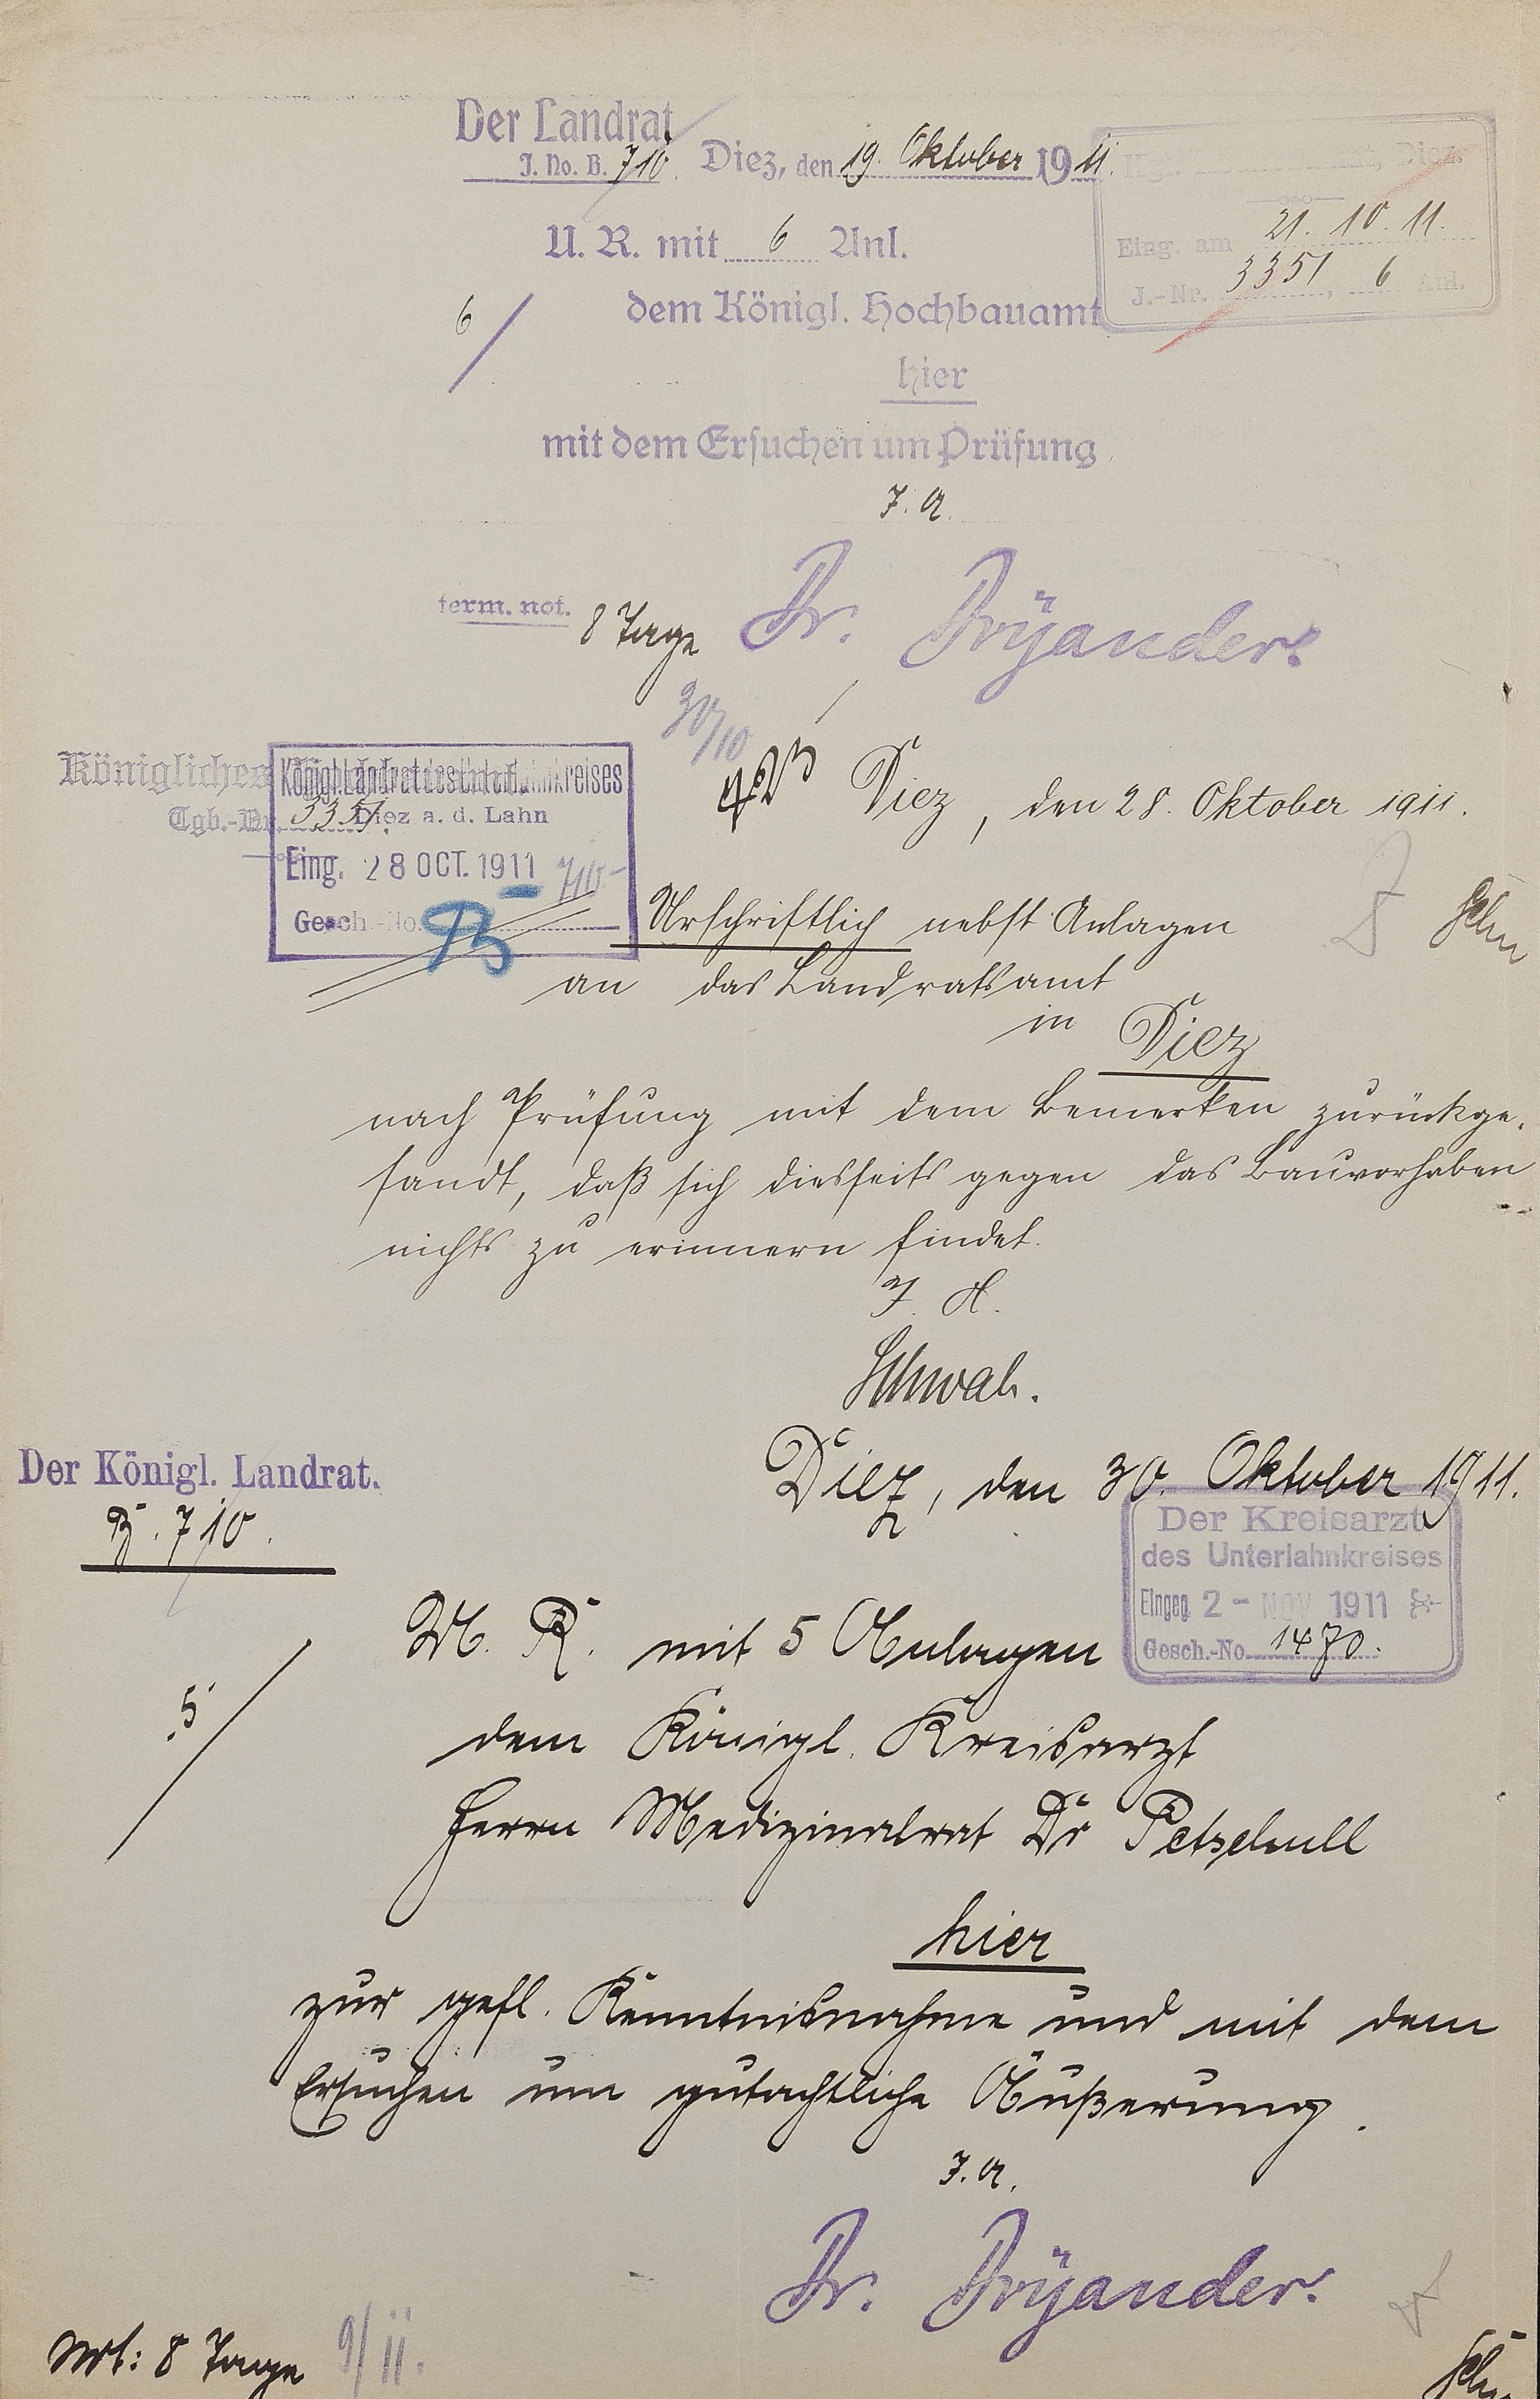 Der Landrat
J. No. B. 710. Diez, den 19. Oktober 1911.
Diez.
Eing. am 21. 10. 11.
J.-Nr. 3351, 6 Anl.
U. R. mit 6 Anl.
6/
dem Königl. Hochbauamt
hier
mit dem Ersuchen um Prüfung
J. A.
term. not. 8 Tage
Dr. Dryander.
30/10
Königliches
Tgb.-Nr. 3351.
Königl. Landrat des Unterlahnkreises
Diez a. d. Lahn
Eing. 28 OCT. 1911 710
Gesch.-No. B
Diez, den 28. Oktober 1911.
Urschriftlich nebst Anlagen
an das Landratsamt
in Diez
nach Prüfung mit dem Bemerken zurückge-
sandt, daß sich diesseits gegen das Bauvorhaben
nichts zu erinnern findet.
Schwab.
Der Königl. Landrat.
B. 710.
Diez, den 30. Oktober 1911.
Der Kreisarzt
des Unterlahnkreises
Eingeg. 2 - NOV 1911
Gesch.-No. 1470.
U. R. mit 5 Anlagen
5/
dem Königl. Kreisarzt
Herrn Medizinalrat Dr
hier
zur gefl. Kenntnisnahme und mit dem
Ersuchen um gutachtliche Äußerung.
J. A.
Dr. Dryander.
8 Tage 9/11.